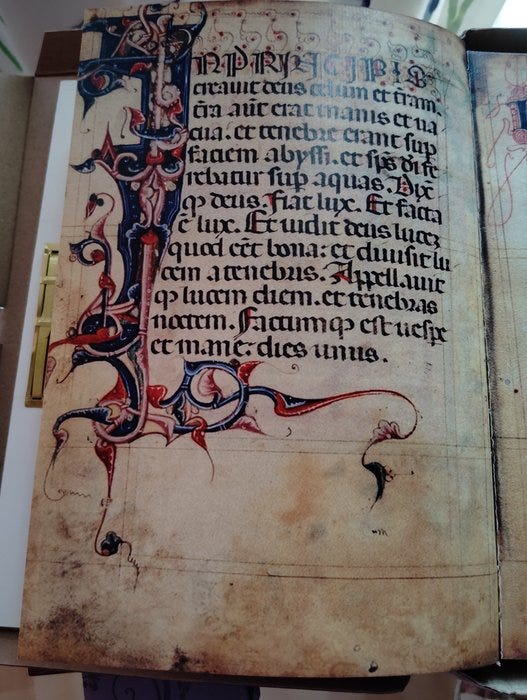 IN PRINCIPIO
creauit deus celum et t̄ram.
t̄ra aūt erat inanis et ua
cua. et tenebre erant sup
faciem abyssi. et sp̄s dī fe
rebatur sup̄ aquas. Dix̄
qꝫ deus. Fiat lux. Et facta
ē lux. Et uidit deus lucez
quod eēt bona: et diuisit lu
cem a tenebris. Appellauit
qꝫ lucem diem. et tenebras
noctem. Factumqꝫ est uesꝑe
et mane: dies unus.